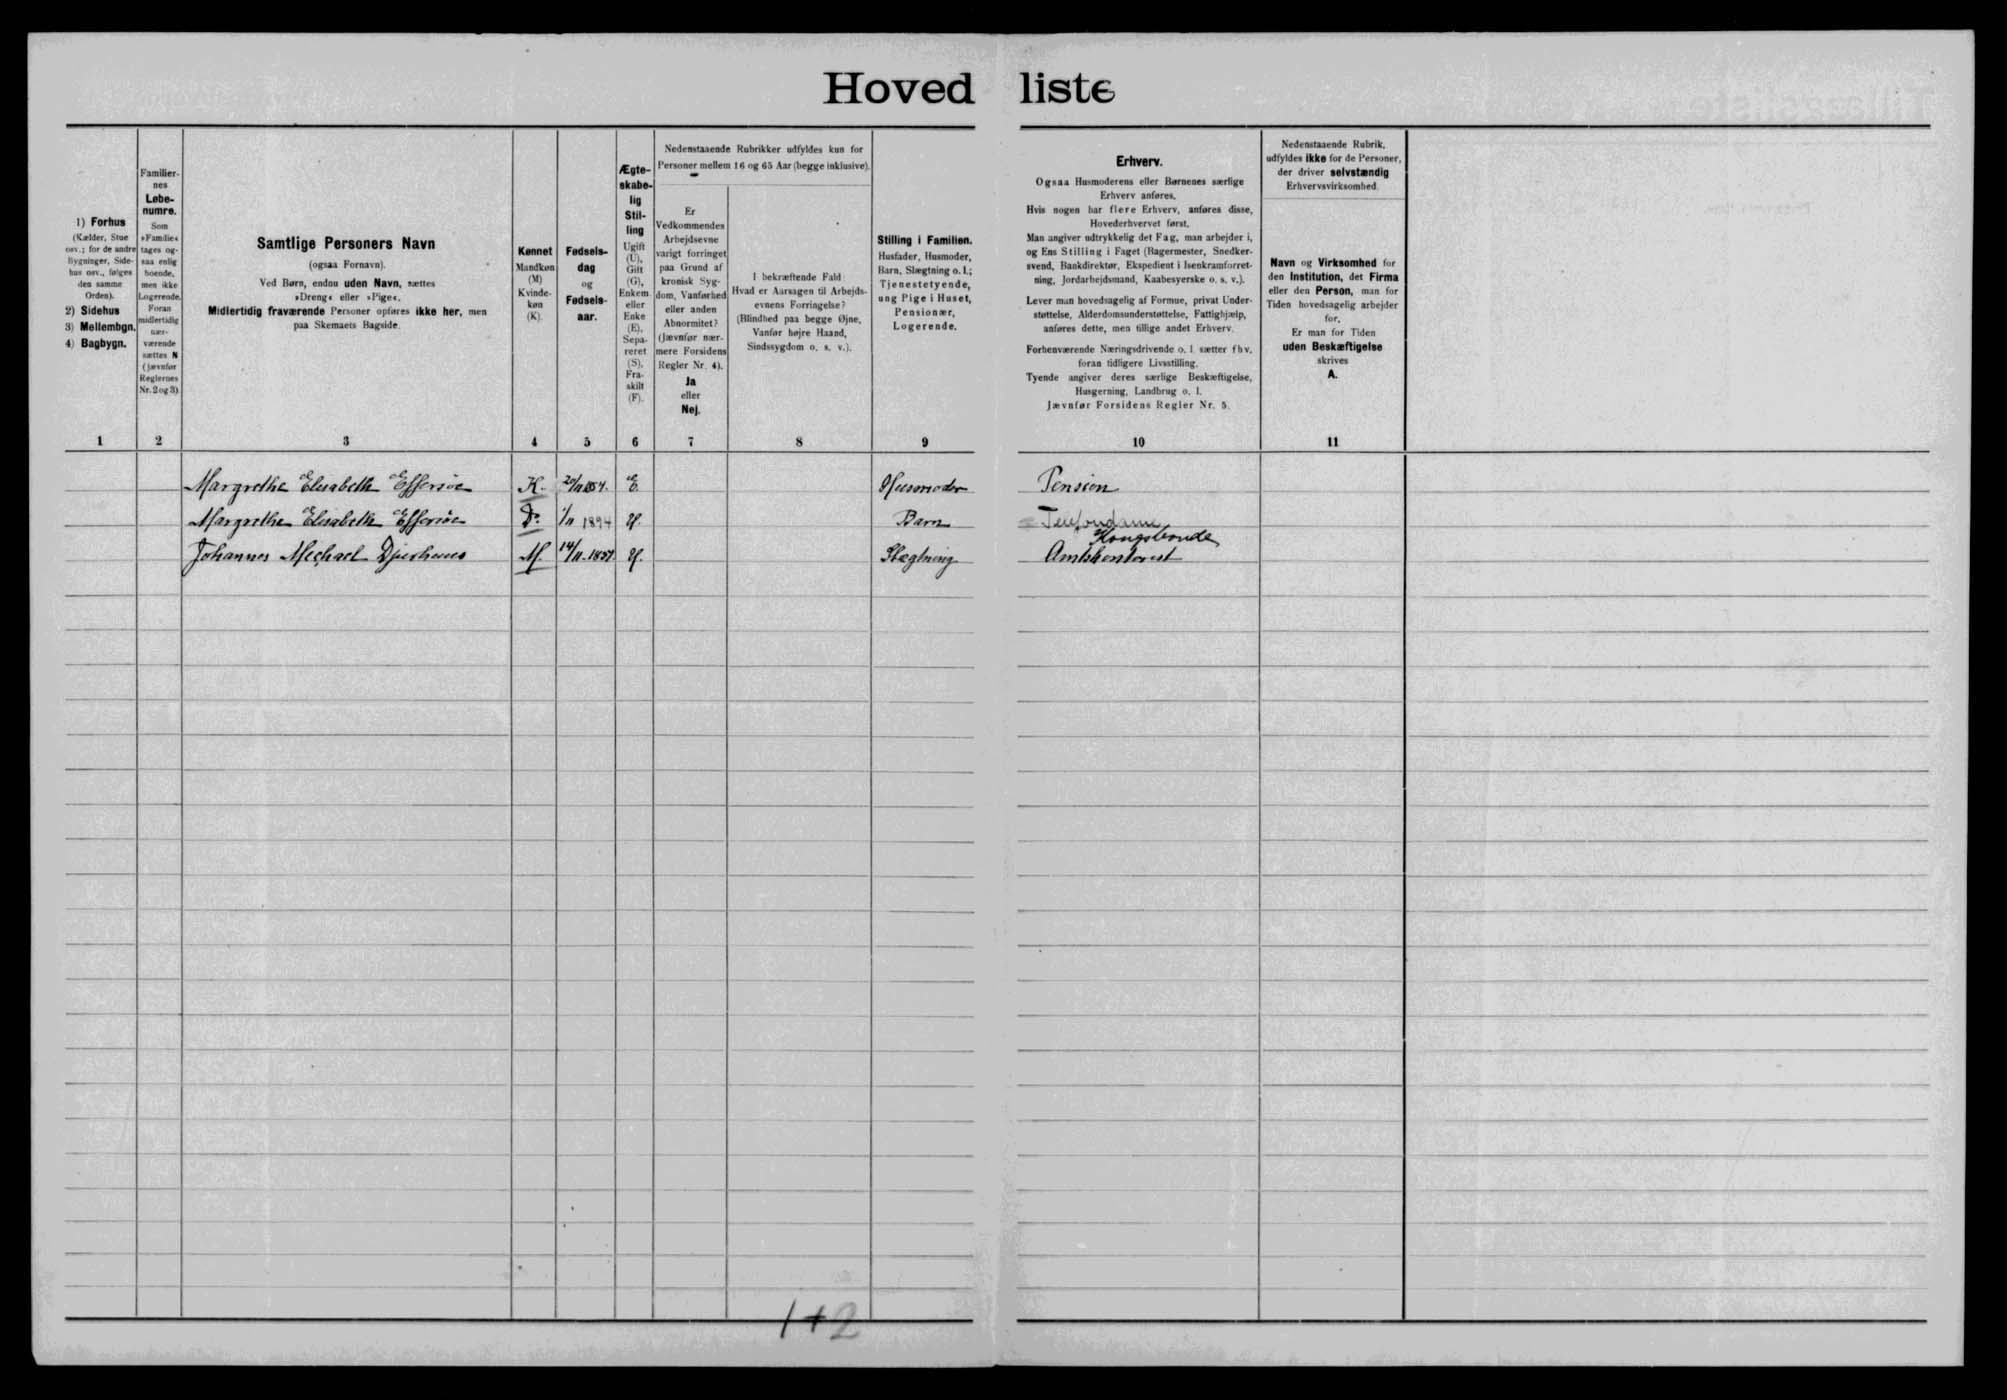 Hovedliste
1) Forhus
(Kælder, Stue
osv.; for de andre
Bygninger, Side-
hus osv., følges
den samme
Orden).
2) Sidehus
3) Mellembgn.
4) Bagbygn.
Familier-
nes
Løbe-
numre.
Som
»Familie«
tages og-
saa enlig
boende,
men ikke
Logerende.
Foran
midlertidig
nær-
værende
sættes N
(jævnfør
Reglernes
Nr. 2 og 3)
Samtlige Personers Navn
(ogsaa Fornavn).
Ved Børn, endnu uden Navn, sættes
»Dreng« eller »Pige«.
Midlertidig fraværende Personer opføres ikke her, men
paa Skemaets Bagside.
Kønnet
Mandkøn
(M)
Kvinde-
køn
(K).
Fødsels-
dag
og
Fødsels-
aar.
Ægte-
skabe-
lig
Stil-
ling
Ugift
(U),
Gift
(G),
Enkem.
eller
Enke
(E),
Sepa-
reret
(S),
Fra-
skilt
(F).
Nedenstaaende Rubrikker udfyldes kun for
Personer mellem 16 og 65 Aar (begge inklusive).
Er
Vedkommendes
Arbejdsevne
varigt forringet
paa Grund af
kronisk Syg-
dom, Vanførhed
eller anden
Abnormitet?
(Jævnfør nær-
mere Forsidens
Regler Nr. 4).
Ja
eller
Nej.
I bekræftende Fald:
Hvad er Aarsagen til Arbejds-
evnens Forringelse?
(Blindhed paa begge Øjne,
Vanfør højre Haand,
Sindssygdom o. s. v.).
Stilling i Familien.
Husfader, Husmoder,
Barn, Slægtning o. l.;
Tjenestetyende,
ung Pige i Huset,
Pensionær,
Logerende.
Erhverv.
Ogsaa Husmoderens eller Børnenes særlige
Erhverv anføres.
Hvis nogen har flere Erhverv, anføres disse,
Hovederhvervet først.
Man angiver udtrykkelig det Fag, man arbejder i,
og Ens Stilling i Faget (Bagermester, Snedker-
svend, Bankdirektør, Ekspedient i Isenkramforret-
ning, Jordarbejdsmand, Kaabesyerske o. s. v.).
Lever man hovedsagelig af Formue, privat Under-
støttelse, Alderdomsunderstøttelse, Fattighjælp,
anføres dette, men tillige andet Erhverv.
Forhenværende Næringsdrivende o. l. sætter fhv.
foran tidligere Livsstilling.
Tyende angiver deres særlige Beskæftigelse,
Husgerning, Landbrug o. l.
Jævnfør Forsidens Regler Nr. 5.
Nedenstaaende Rubrik,
udfyldes ikke for de Personer,
der driver selvstændig
Erhvervsvirksomhed.
Navn og Virksomhed for
den Institution, det Firma
eller den Person, man for
Tiden hovedsagelig arbejder
for.
Er man for Tiden
uden Beskæftigelse
skrives
A.
1 2 3 4 5 6 7 8 9 10 11
Margrethe Elisabeth Effersøe K. 20/11 1854. E. Husmoder Pension
Margrethe Elisabeth Effersøe Do 1/11 1894 U. Barn Telefondame
Kongsbonde
Johannes Michael Djurhuus M. 14/11.1857 U. Slægtning Amtskontorist
1+2